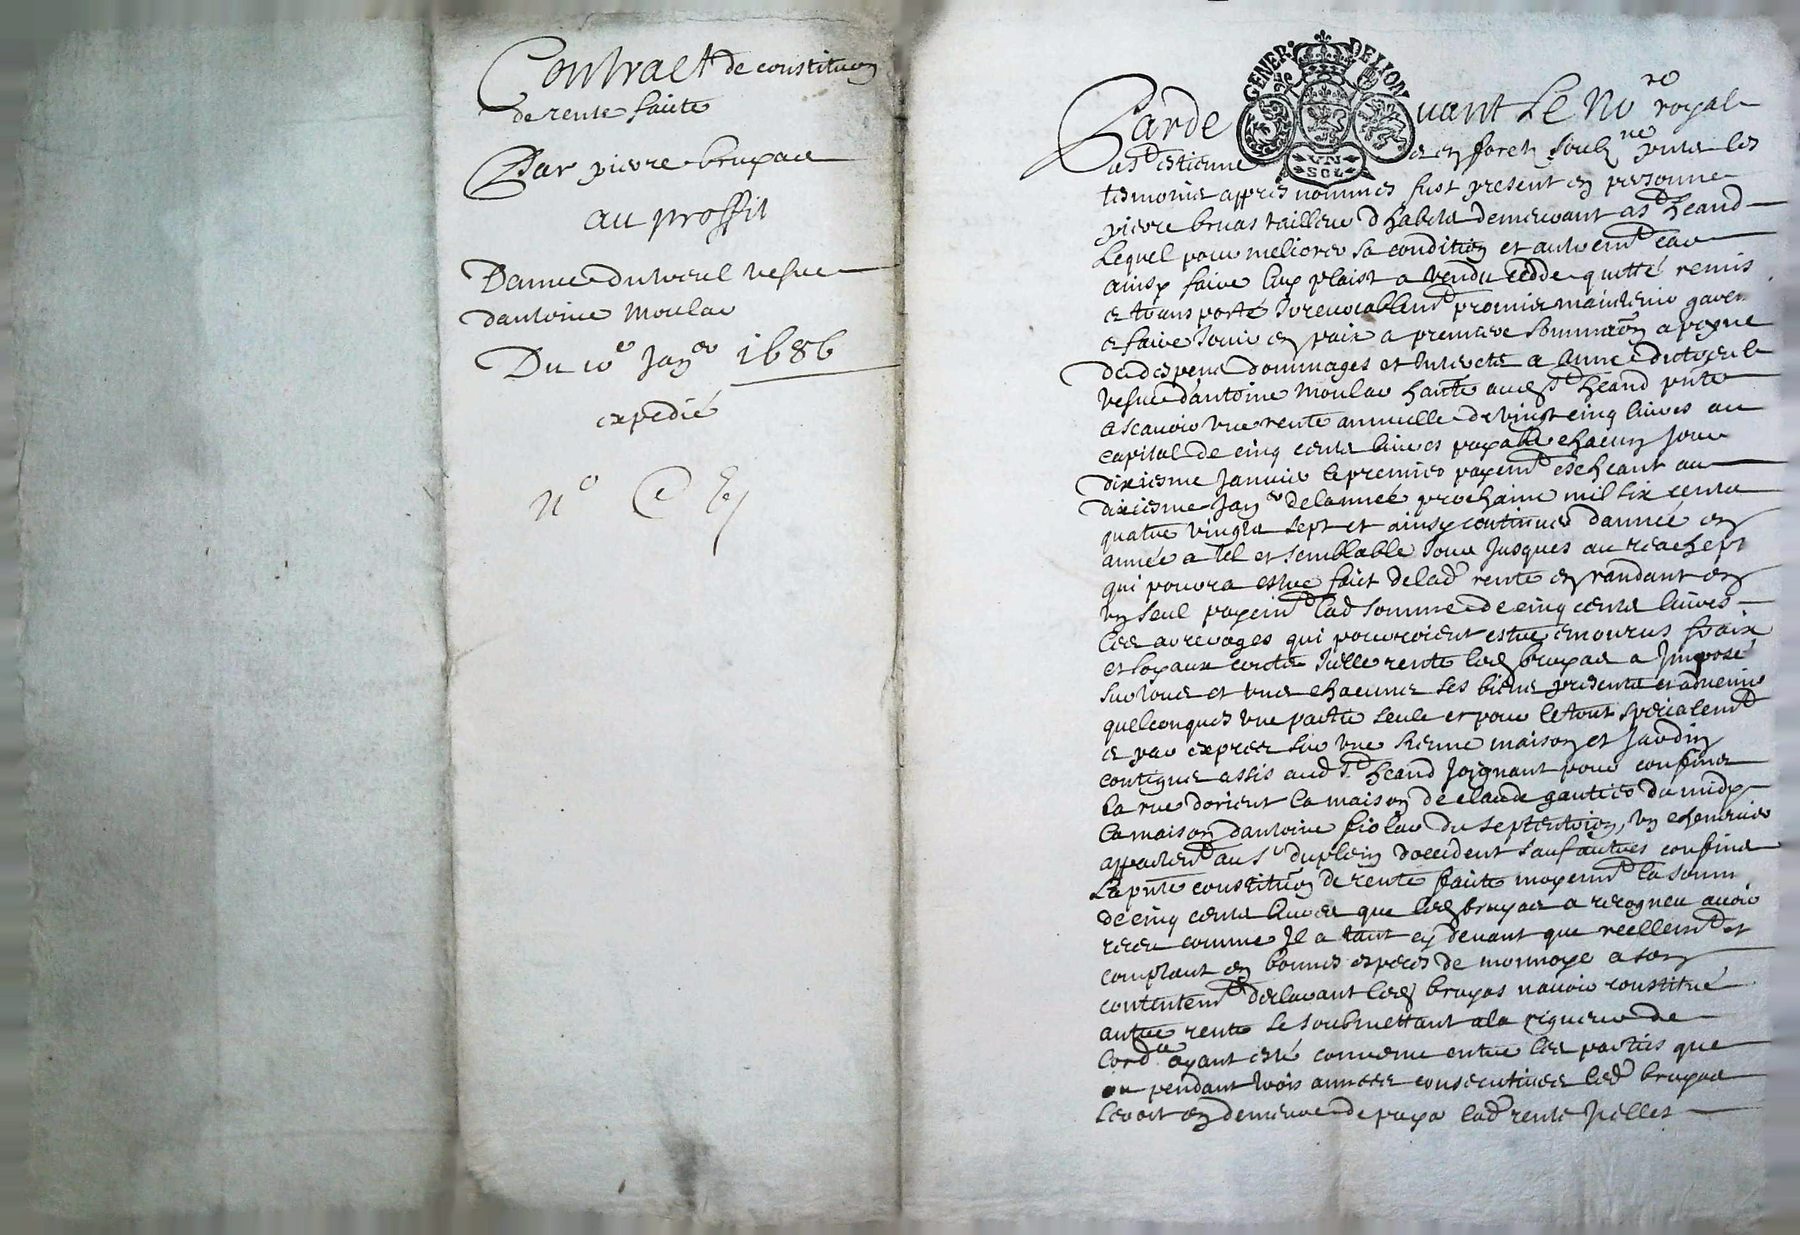 Contract de constitution
de rente faite
Par pierre bruyas
au proffit
Danne dutreul vefue
dantoine Moulac
Du 10e Janer 1686
expedié
n° @
GENER. DE LION
UN SOL
Pardeuant Le Nore royal
a st estienne en forest soubzne pnts les
tesmoins appres nommes fust present en personne
pierre bruas tailleur dhabits demeurant a st heand
Lequel pour meliorer sa condition et autremt car
ainsy faire luy plaist a vendu cedde quitté remis
et transporté Irreuocablemt promis maintenir garen
et faire Jouir en paix a premiere sommaon a peyne
de despens dommages et Interets a Anne dutreul
vefue dantoine Moulac hante aud st heand pnte
a scauoir vne rente annuelle de vingt cinq liures au
capital de cinq cents liures payable chacun Jour
dixiesme Januier le premier payemt escheant au
dixiesme Janer de lannée prochaine mil six cents
quatre vingts sept et ainsy continuer dannée en
année a tel et semblable Jour Jusques au reachept
qui pourra estre fait de lad rente en randant en
vn seul payemt lad somme de cinq cents liures
les arrerages qui pourroient estre encourus fraix
et loyaux couts Icelle rente led bruyas a Imposé
sur tous et vns chacuns ses biens presents et aduenir
quelconques vne partie seule et pour le tout specialemt
et par expres sur vne sienne maison et Jardin
contigus assis aud st heand Joignant pour confins
la rue dorient la maison de claude gautier du midy
la maison dantoine fiolac du septentrion, vn cheneuier
appartent au sr duplein doccident sauf autres confins
La pnte constituon de rente faite moyent la somm
de cinq cents liures que led bruyas a recogneu auoir
receu comme Il a tant cy deuant que reellemt et
comptant en bonnes especes de monnoye a son
contentemt declarant led bruyas nauoir constitué
autre rente se soubmettant a la rigueur de
lordce ayant esté conuenu entre les parties que
ou pendant trois annees consecutiues led bruyas
seroit en demeure de payer lad rente Icelles